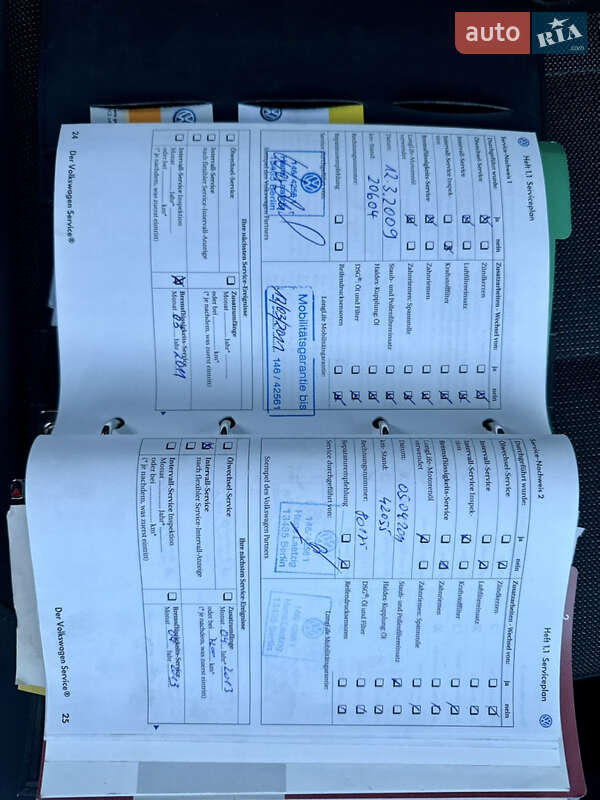 auto RIA .com
Heft 1.1 Serviceplan
Service-Nachweis 1
Durchgeführt wurde: ja nein
Zusatzarbeiten - Wechsel von: ja nein
Ölwechsel-Service
Zündkerzen
Intervall-Service
Luftfiltereinsatz
Intervall-Service Inspek-
tion
Kraftstofffilter
Bremsflüssigkeits-Service
Zahnriemen
LongLife-Motorenöl
verwendet
Zahnriemen: Spannrolle
Datum: 12.3.2009
Staub- und Pollenfiltereinsatz
km-Stand: 20604
Haldex Kupplung: Öl
Rechnungsnummer:
DSG®: Öl und Filter
Reparaturempfehlung
Reifendrucksensoren
Service durchgeführt von:
LongLife Mobilitätsgarantie:
Mobilitätsgarantie bis
12/03/2011 146 / 42561
13485 Berlin
Stempel des Volkswagen Partners
Ihre nächsten Service-Ereignisse
Ölwechsel-Service
Intervall-Service
nach flexibler Service-Intervall-Anzeige
Intervall-Service Inspektion
Monat Jahr*
oder bei km*
(* je nachdem, was zuerst eintritt)
Zusatzumfänge
Monat Jahr*
oder bei km*
(* je nachdem, was zuerst eintritt)
Bremsflüssigkeits-Service
Monat 03 Jahr 2011
24 Der Volkswagen Service®
Heft 1.1 Serviceplan
Service-Nachweis 2
Durchgeführt wurde: ja nein
Zusatzarbeiten - Wechsel von: ja nein
Ölwechsel-Service
Zündkerzen
Intervall-Service
Luftfiltereinsatz
Intervall-Service Inspek-
tion
Kraftstofffilter
Bremsflüssigkeits-Service
Zahnriemen
LongLife-Motorenöl
verwendet
Zahnriemen: Spannrolle
Datum:
Staub- und Pollenfiltereinsatz
km-Stand: 42055
Haldex Kupplung: Öl
Rechnungsnummer:
DSG®: Öl und Filter
Reparaturempfehlung
Reifendrucksensoren
Service durchgeführt von:
LongLife Mobilitätsgarantie:
13485 Berlin
Stempel des Volkswagen Partners
Ihre nächsten Service-Ereignisse
Ölwechsel-Service
Intervall-Service
nach flexibler Service-Intervall-Anzeige
Intervall-Service Inspektion
Monat Jahr*
oder bei km*
(* je nachdem, was zuerst eintritt)
Zusatzumfänge
Monat 04 Jahr* 2013
oder bei km*
(* je nachdem, was zuerst eintritt)
Bremsflüssigkeits-Service
Monat 04 Jahr 2013
Der Volkswagen Service® 25